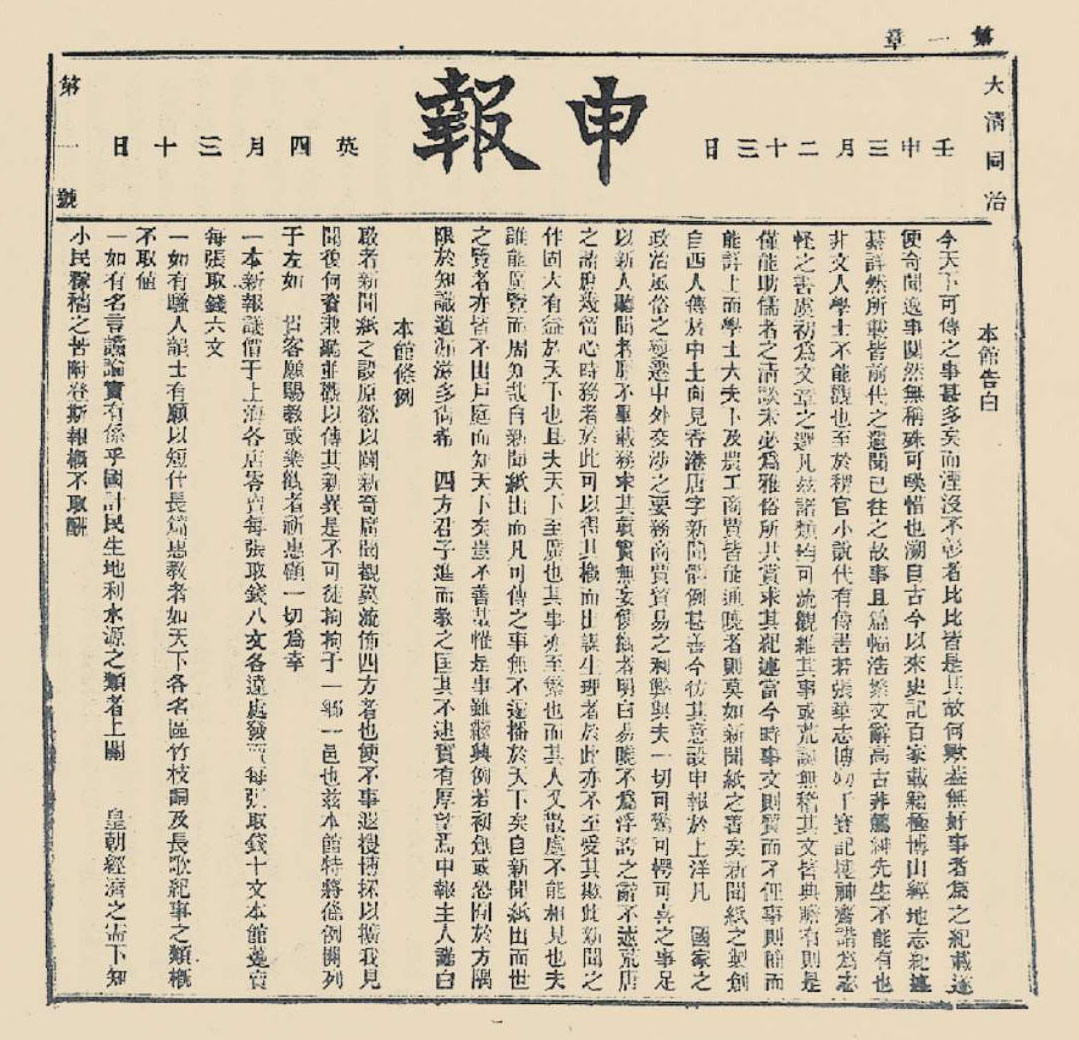 第一章
大清同治
壬申三月二十三日
申報
英四月三十日
第一號
本館告白
今天下可傳之事甚多矣而湮沒不彰者比比皆是其故何歟蓋無好事者為之紀載遂
使奇聞逸事闃然無稱殊可嘆惜也溯自古今以來史記百家載籍極博山經地志紀述
綦詳然所載皆前代之遺聞已往之故事且篇幅浩繁文辭高古非薦紳先生不能有也
非文人學士不能觀也至於稗官小說代有傳書若張華志博物干寶記搜神齊諧為志
怪之書虞初為文章之選凡茲諸類均可流觀維其事或荒誕無稽其文皆典贍有則是
僅能助儒者之清談未必為雅俗所共賞求其紀述當今時事文則質而不俚事則簡而
能詳上而學士大夫下及農工商賈皆能通曉者則莫如新聞紙之善矣新聞紙之製創
自西人傳於中土向見香港唐字新聞體例甚善今仿其意設申報於上洋凡　國家之
政治風俗之變遷中外交涉之要務商賈貿易之利弊與夫一切可驚可愕可喜之事足
以新人聽聞者靡不畢載務求其真實無妄使觀者明白易曉不為浮誇之辭不述荒唐
之語庶幾留心時務者於此可以得其概而出謀生理者於此亦不至受其欺此新聞之
作固大有益於天下也且夫天下至廣也其事亦至繁也而其人又散處不能相見也夫
誰能廣覽而周知哉自新聞紙出而凡可傳之事無不遍播於天下矣自新聞紙出而世
之覽者亦皆不出戶庭而知天下矣豈不善哉惟是事雖繼興例若初創或恐囿於方隅
限於知識遺漏滋多尚希　四方君子進而教之匡其不逮實有厚望焉申報主人謹白
本館條例
啟者新聞紙之設原欲以闢新奇廣聞觀冀流佈四方者也使不事遐搜博採以擴我見
聞復何資兼聽並觀以傳其新異是不可徒拘拘于一鄉一邑也茲本館特將條例開列
于左如　客願賜教或樂觀者祈惠顧一切為幸
一本新報議價于上海各店零賣每張取錢八文各遠處發賣每張取錢十文本館躉賣
每張取錢六文
一如有騷人韻士有願以短什長篇惠教者如天下各名區竹枝詞及長歌紀事之類概
不取值
一如有名言讜論實有係乎國計民生地利水源之類者上關　皇朝經濟之需下知
小民稼穡之苦附登斯報概不取酬